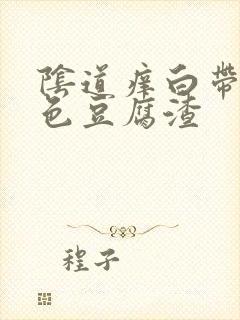 陰道痒白帶
色豆腐渣
程子